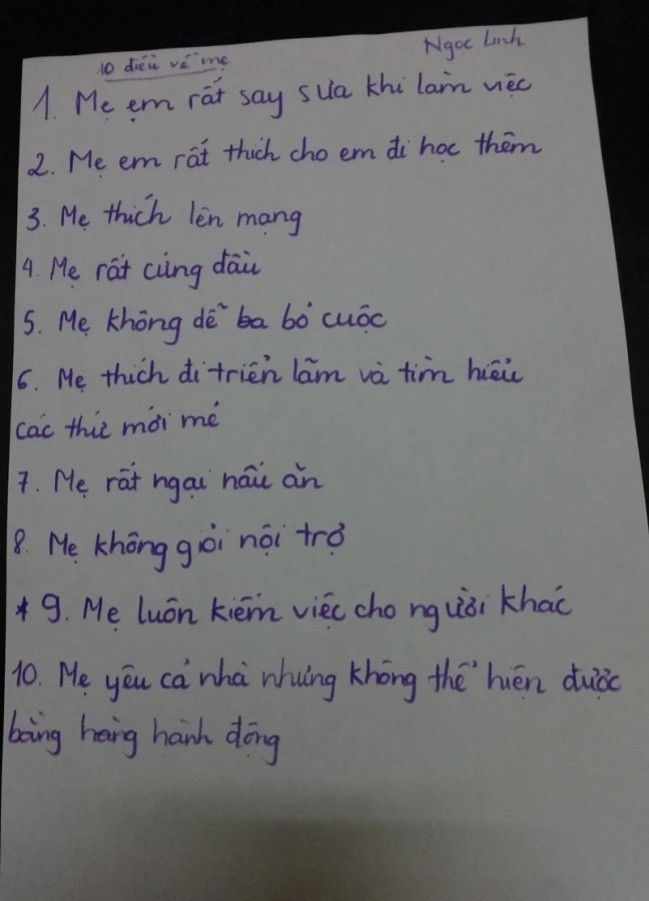 Ngọc Linh
10 điều về mẹ
1. Mẹ em rất say sưa khi làm việc
2. Mẹ em rất thích cho em đi học thêm
3. Mẹ thích lên mạng
4. Mẹ rất cứng đầu
5. Mẹ không dễ ba bỏ cuộc
6. Mẹ thích đi triển lãm và tìm hiểu
các thứ mới mẻ
7. Mẹ rất ngại nấu ăn
8. Mẹ không giỏi nội trợ
* 9. Mẹ luôn kiếm việc cho người khác
10. Mẹ yêu cả nhà nhưng không thể hiện được
bằng hàng hành động